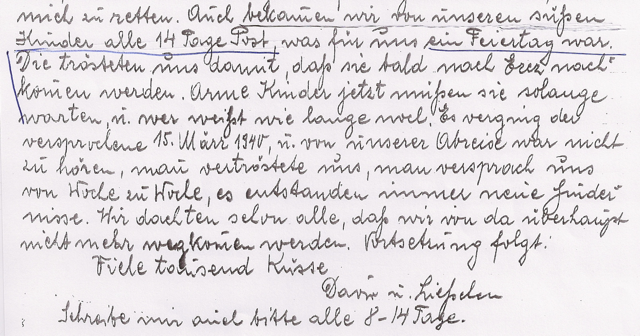 mich zu retten. Auch bekamen wir von unseren süßen
Kinder alle 14 Tage Post, was für uns ein Feiertag war.
Die trösteten uns damit, daß sie bald nach Erez nach-
komen werden. Arme Kinder jetzt müßen sie solange
warten, u. wer weißt wie lange noch. Es verging der
versprochene 15. März 1940, u. von unserer Abreise war nicht
zu hören, man vertröstete uns, man versprach uns
von Woche zu Woche, es entstanden immer neue Hinder-
nisse. Wir dachten schon alle, daß wir von da überhaupt
nicht mehr wegkomen werden. Fortsetzung folgt.
Viele tausend Küsse
u.
Schreibe mir auch bitte alle 8-14 Tage.